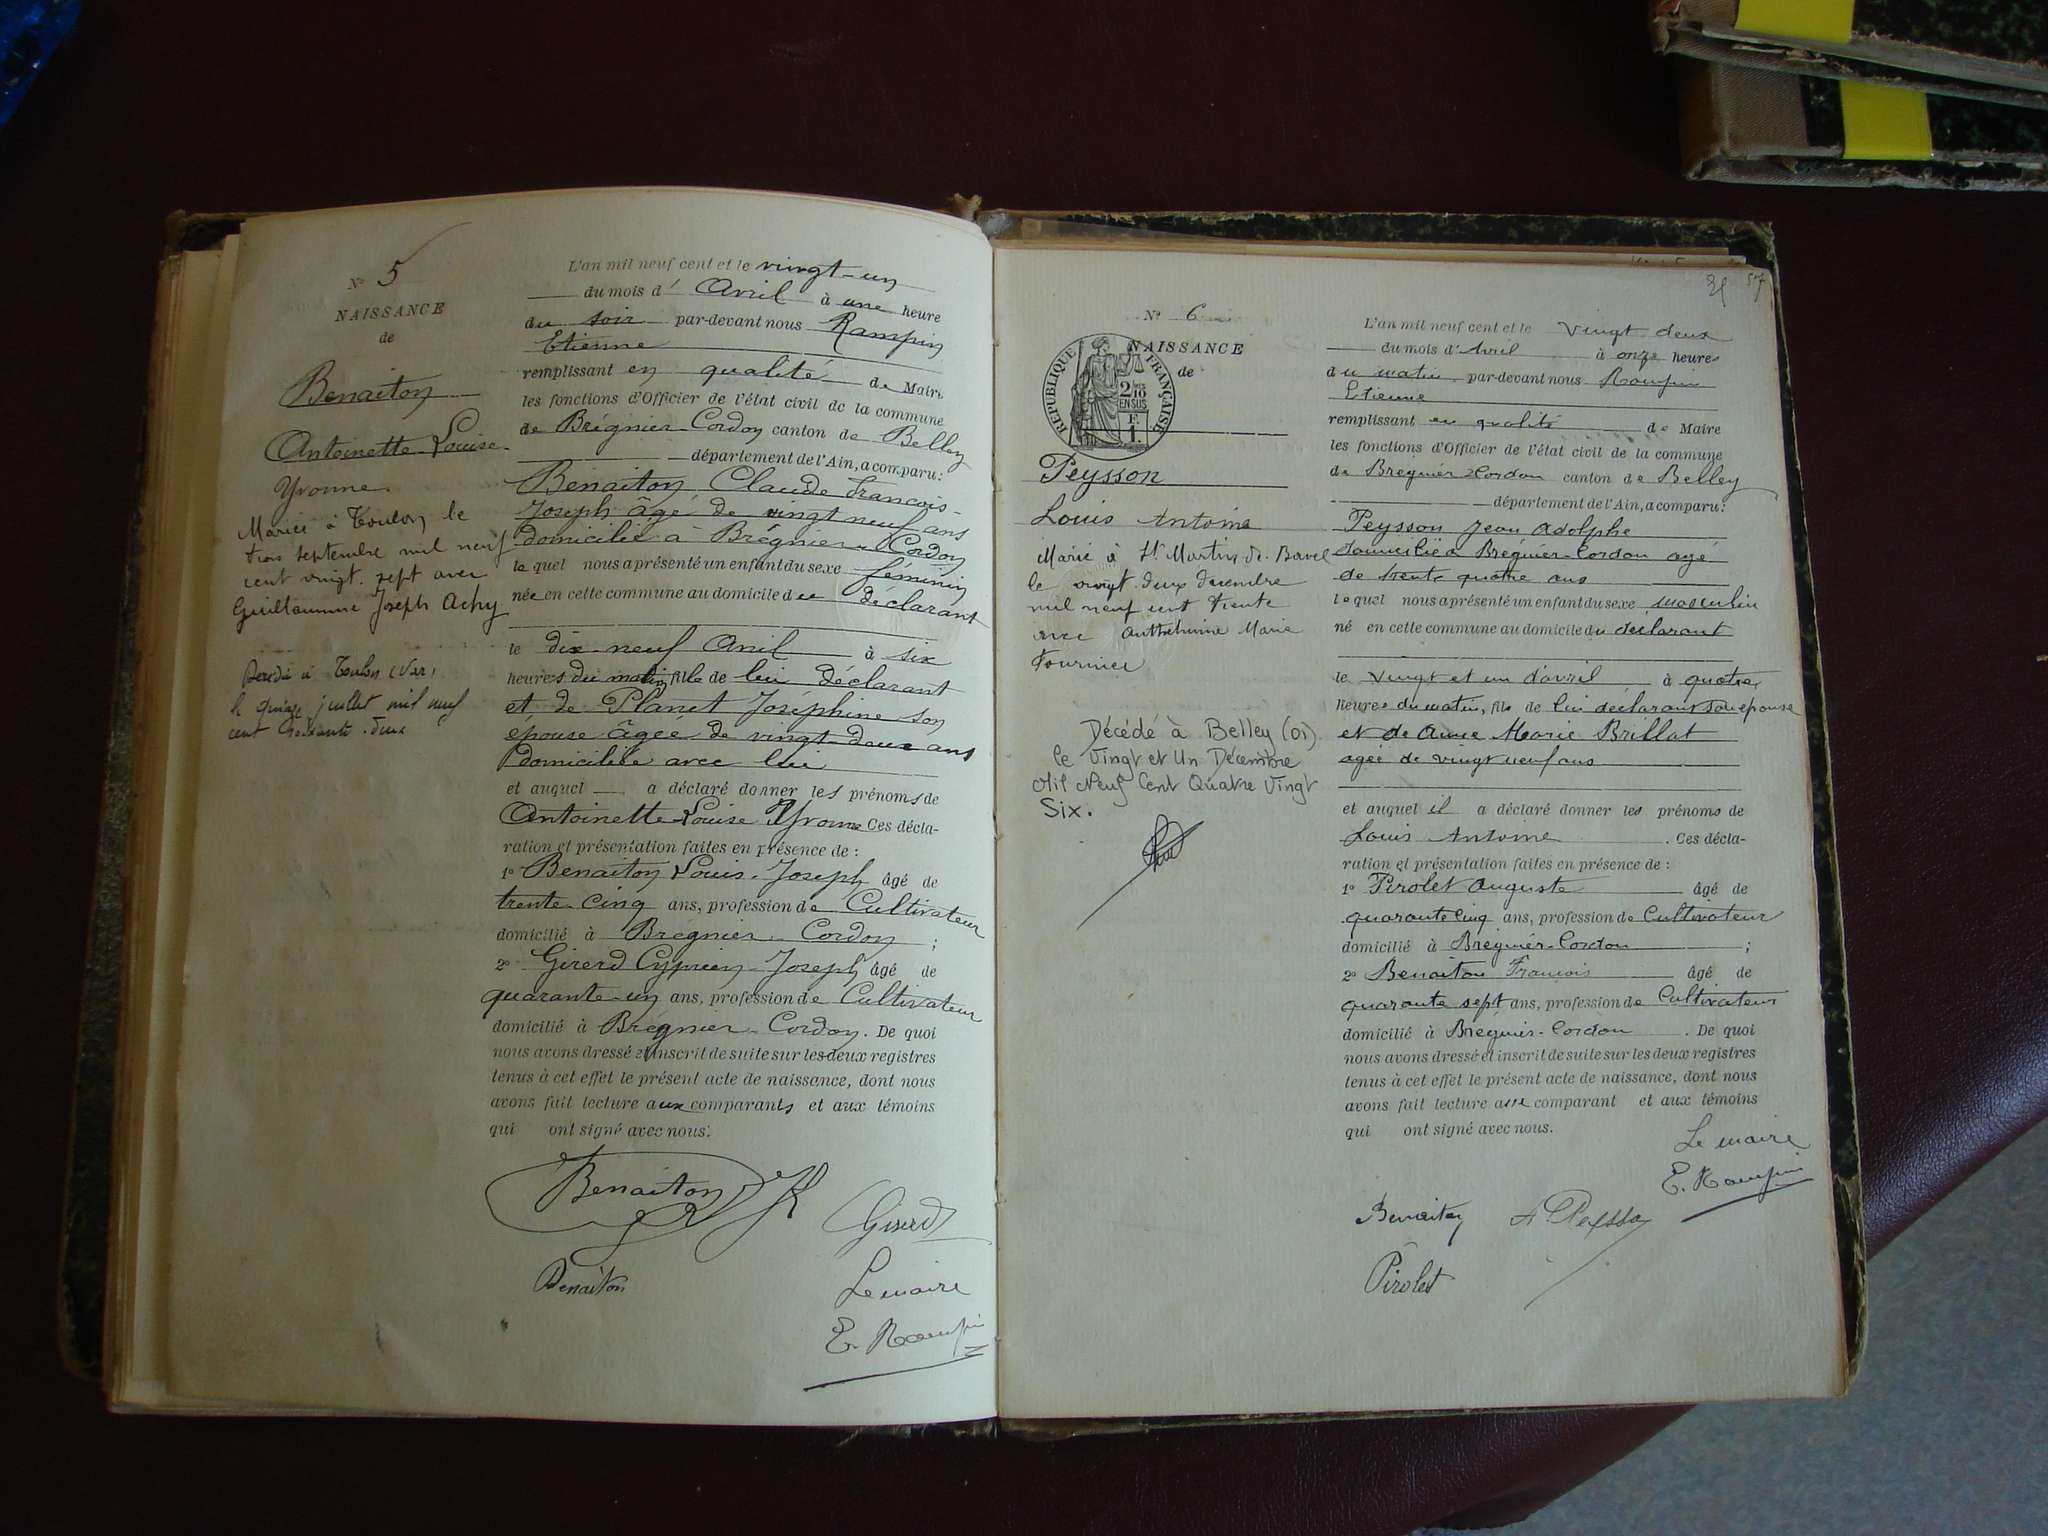 Nº 5
NAISSANCE
de
Benaiton
Antoinette Louise
Yvonne
Mariée à Toulon le
trois septembre mil neuf
cent vingt-sept avec
Guillaume Joseph Achy
à Toulon (Var)
le quinze juillet mil neuf
cent soixante-deux
L'an mil neuf cent et le vingt-un
du mois d' Avril à une heure
du soir par-devant nous Rampin
Etienne
remplissant en qualité de Maire
les fonctions d'Officier de l'état civil de la commune
de Brégnier-Cordon canton de Belley
département de l'Ain, a comparu:
Benaiton Claude François-
Joseph âgé de vingt neuf ans
domicilié à Brégnier-Cordon
lequel nous a présenté un enfant du sexe féminin
née en cette commune au domicile du déclarant
le dix-neuf Avril à six
heures du matin fille de lui déclarant
et de Planet Joséphine son
épouse âgée de vingt-deux ans
domiciliée avec lui
et auquel a déclaré donner les prénoms de
Antoinette Louise Yvonne Ces décla-
ration et présentation faites en présence de :
1º Benaiton Louis-Joseph âgé de
trente-cinq ans, profession de Cultivateur
domicilié à Brégnier-Cordon ;
2º Girerd Cyprien-Joseph âgé de
quarante-un ans, profession de Cultivateur
domicilié à Brégnier-Cordon. De quoi
nous avons dressé et inscrit de suite sur les deux registres
tenus à cet effet le présent acte de naissance, dont nous
avons fait lecture aux comparants et aux témoins
qui ont signé avec nous.
Benaiton
Girerd
Benaiton
Le maire
E. Rampin
57
Nº 6
NAISSANCE
de
RÉPUBLIQUE FRANÇAISE
2/10
EN SUS
F.
1.
Peysson
Louis Antoine
Marié à St Martin de Bavel
le vingt deux décembre
mil neuf cent trente
avec Anthelmine Marie
Fournier
Décédé à Belley (01)
le Vingt et Un Décembre
Mil Neuf Cent Quatre Vingt
Six.
L'an mil neuf cent et le vingt deux
du mois d'Avril à onze heures
du matin par-devant nous Rampin
Etienne
remplissant en qualité de Maire
les fonctions d'Officier de l'état civil de la commune
de Brégnier-Cordon canton de Belley
département de l'Ain, a comparu:
Peysson Jean Adolphe
domicilié à Brégnier-Cordon agé
de trente quatre ans
lequel nous a présenté un enfant du sexe masculin
né en cette commune au domicile du déclarant
le vingt et un d'avril à quatre
heures du matin, fils de lui déclarant son epouse
et de Anne Marie Brillat
agée de vingt neuf ans
et auquel il a déclaré donner les prénoms de
Louis Antoine. Ces décla-
ration et présentation faites en présence de :
1º Pirolet Auguste âgé de
quarante cinq ans, profession de Cultivateur
domicilié à Brégnier-Cordon ;
2º Benaiton François âgé de
quarante sept ans, profession de Cultivateur
domicilié à Brégnier-Cordon. De quoi
nous avons dressé et inscrit de suite sur les deux registres
tenus à cet effet le présent acte de naissance, dont nous
avons fait lecture au comparant et aux témoins
qui ont signé avec nous.
Le maire
E. Rampin
Benaiton A Peysson
Pirolet